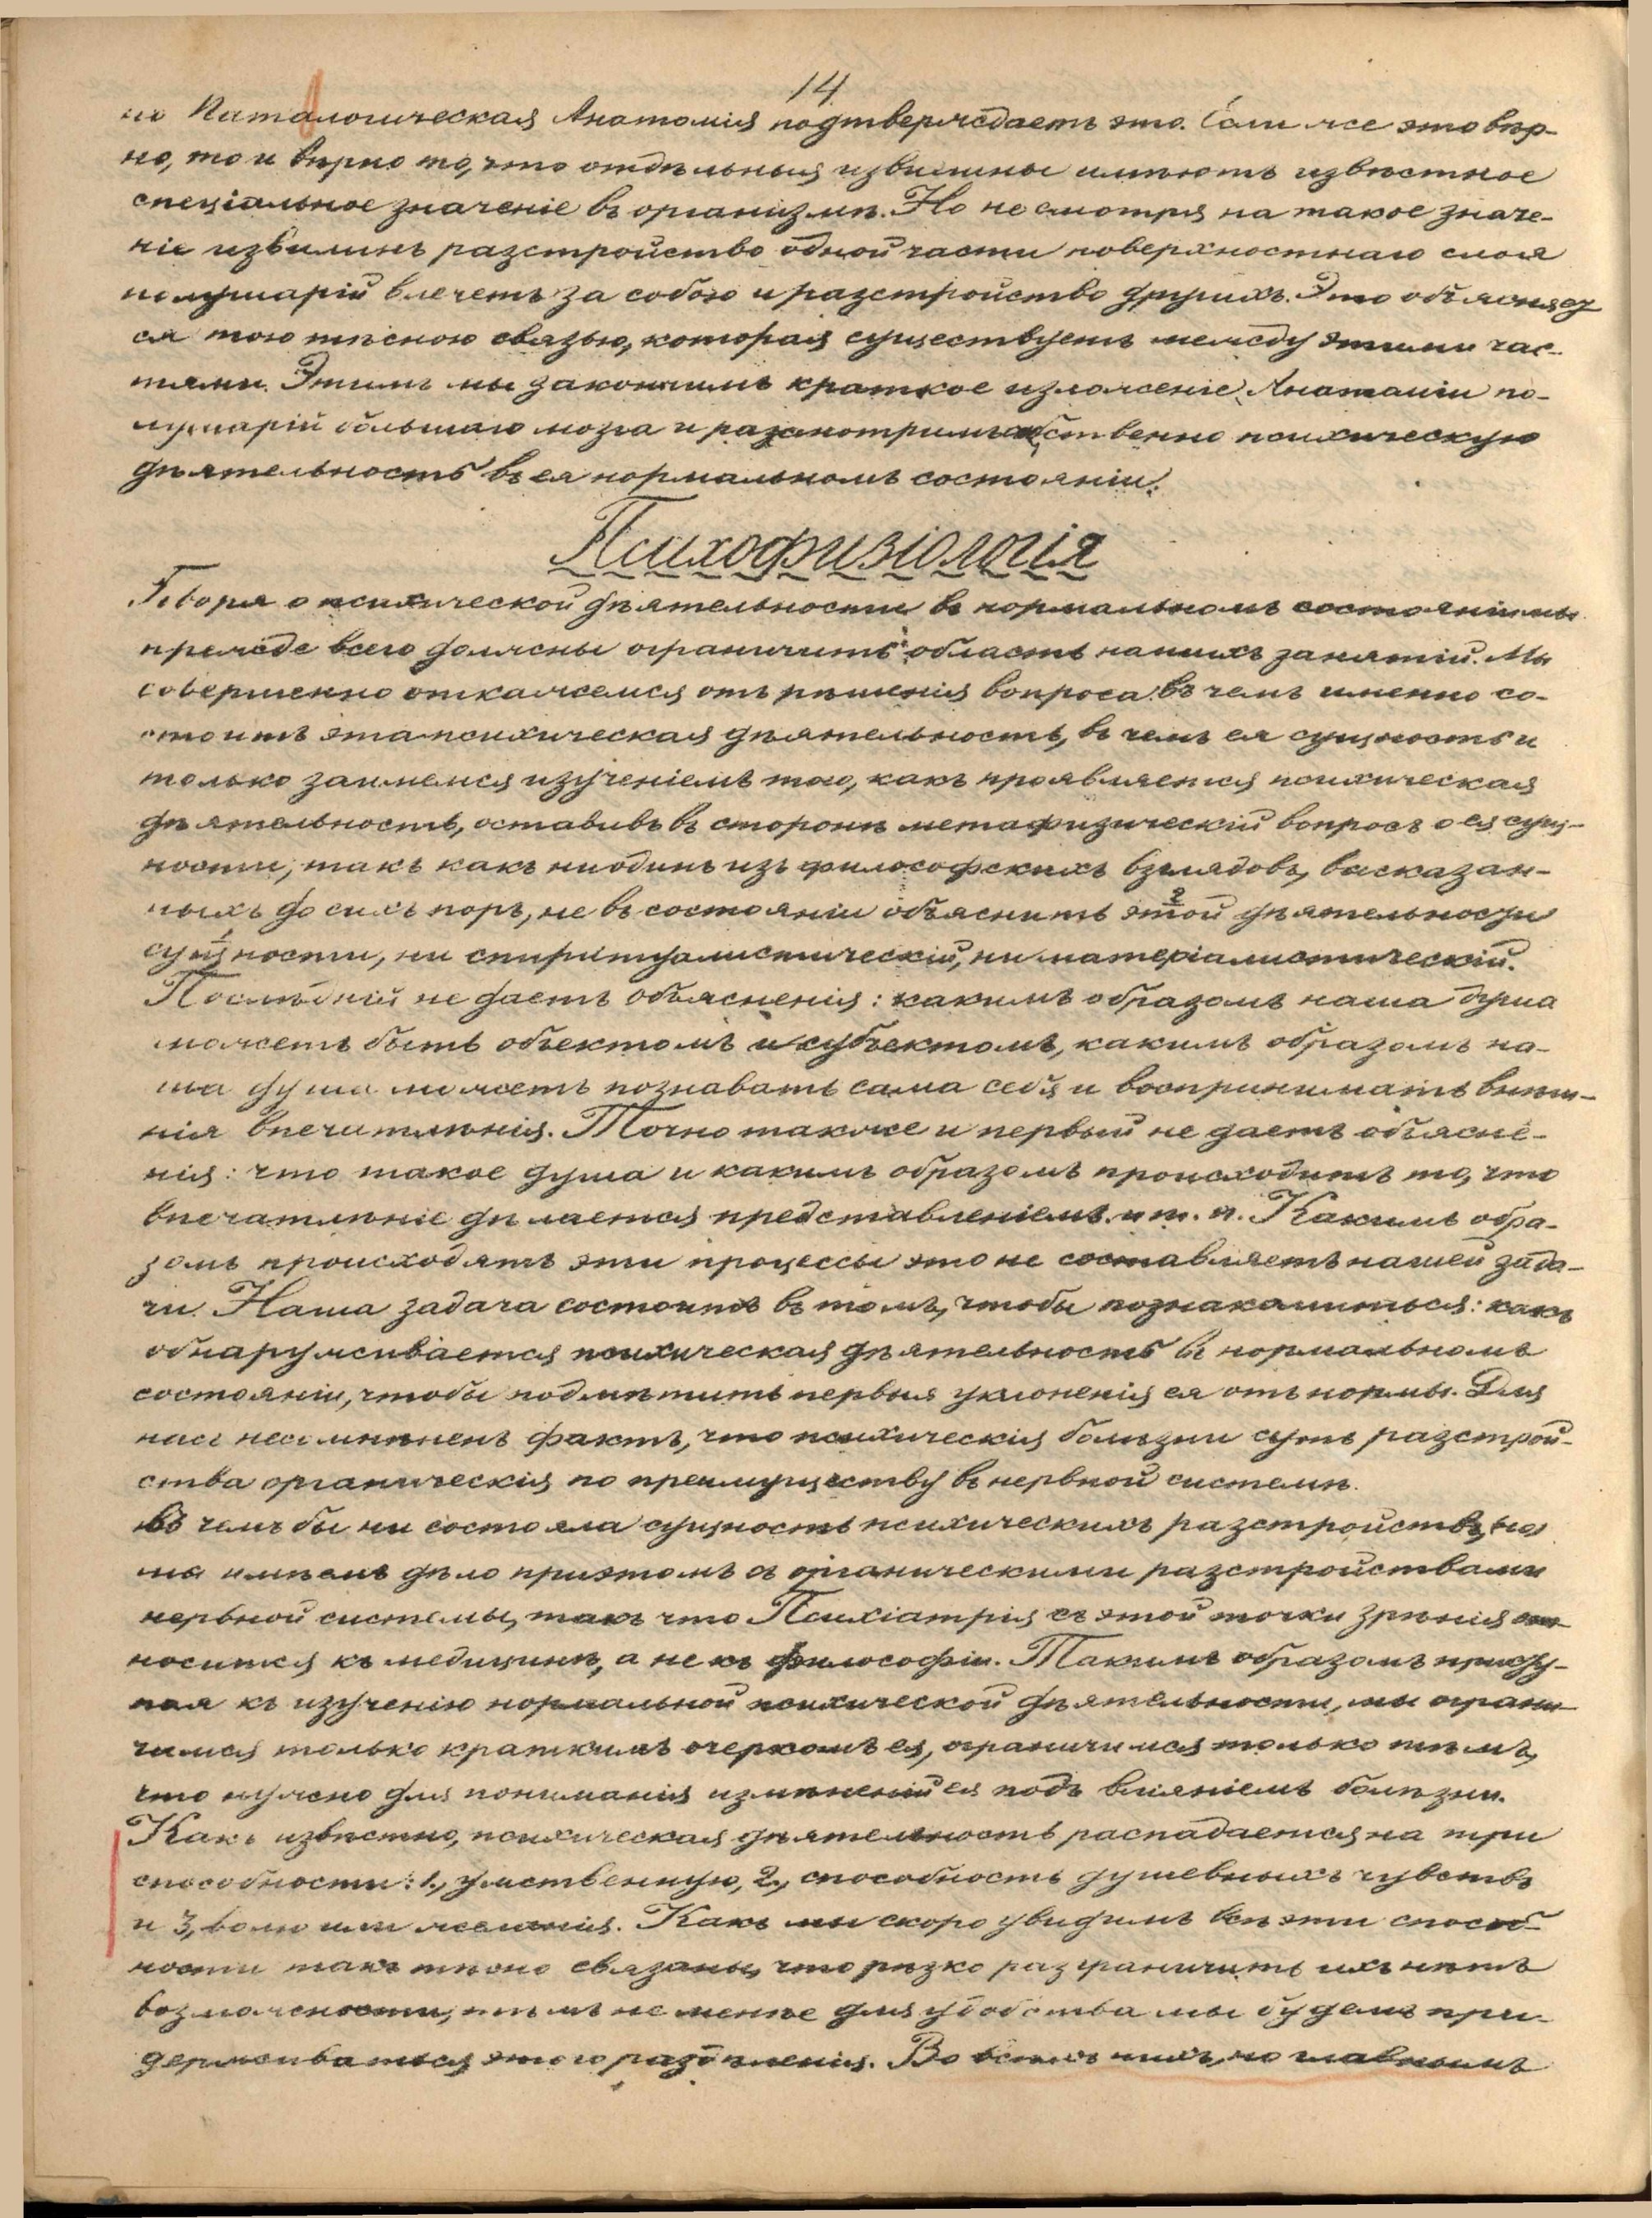 14
но Паталогическая Анатомія подтверждаетъ это. Если же это вѣр-
но, то и вѣрно то, что отдѣльныя извилины имѣютъ извѣстное
спеціальное значеніе въ организмѣ. Но не смотря на такое значе-
ніе извилинъ разстройство одной части поверхностнаго слоя
полушарій влечетъ за собою и разстройство другихъ. Это объясняет
ся тою тѣсною связью, которая существуетъ между этими час-
тями. Этимъ мы закончимъ краткое изложеніе Анатоміи по-
лушарій большаго мозга и разсмотримъ собственно психическую
дѣятельность въ ея нормальномъ состояніи.
Психофизіологія
Говоря о психической дѣятельности въ нормальномъ состояніи мы
прежде всего должны ограничить область нашихъ занятій. Мы
совершенно откажемся отъ рѣшенія вопроса: въ чемъ именно со-
стоитъ эта психическая дѣятельность, въ чемъ ея сущность и
только займемся изученіемъ того, какъ проявляется психическая
дѣятельность, оставивъ въ сторонѣ метафизическій вопросъ о ея сущ-
ности, такъ какъ ниодинъ изъ философскихъ взглядовъ, высказан-
ныхъ до сихъ поръ, не въ состояніи объяснить этой дѣятельности
сущности, ни спиритуалистическій, ни матеріалистическій.
Послѣдній не даетъ объясненія: какимъ образомъ наша душа
можетъ быть объектомъ и субъектомъ, какимъ образомъ на-
ша душа можетъ познавать сама себя и воспринимать внѣш-
нія впечатлѣнія. Точно также и первый не даетъ объясне-
нія: что такое душа и какимъ образомъ происходитъ то, что
впечатлѣніе дѣлается представленіемъ и т. п. Какимъ обра-
зомъ происходятъ эти процессы это не составляетъ нашей зада-
чи. Наша задача состоитъ въ томъ, чтобы познакомиться: какъ
обнаруживается психическая дѣятельность въ нормальномъ
состояніи, чтобы подмѣтить первыя уклоненія ея отъ нормы. Для
насъ несомнѣненъ фактъ, что психическія болѣзни суть разстрой-
ства органическія по преимуществу въ нервной системѣ.
Въ чемъ бы ни состояла сущность психическихъ разстройствъ, но
мы имѣемъ дѣло приэтомъ съ органическими разстройствами
нервной системы, такъ что Психіатрія съ этой точки зрѣнія от-
носится къ медицинѣ, а не къ философіи. Такимъ образомъ присту-
пая къ изученію нормальной психической дѣятельности, мы ограни-
чимся только краткимъ очеркомъ ея, ограничимся только тѣмъ,
что нужно для пониманія измѣненій ея подъ вліяніемъ болѣзни.
Какъ извѣстно, психическая дѣятельность распадается на три
способности: 1., умственную, 2., способность душевныхъ чувствъ
и 3, волю или желанія. Какъ мы скоро увидимъ всѣ эти способ-
ности такъ тѣсно связаны, что рѣзко разграничить ихъ нѣтъ
возможности, тѣмъ не менѣе для удобства мы будемъ при-
держиваться этого раздѣленія. Во всѣхъ нихъ, но главнымъ